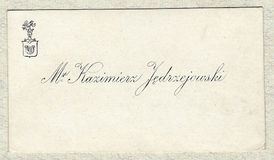 Mr Kazimierz Jędrzejowski